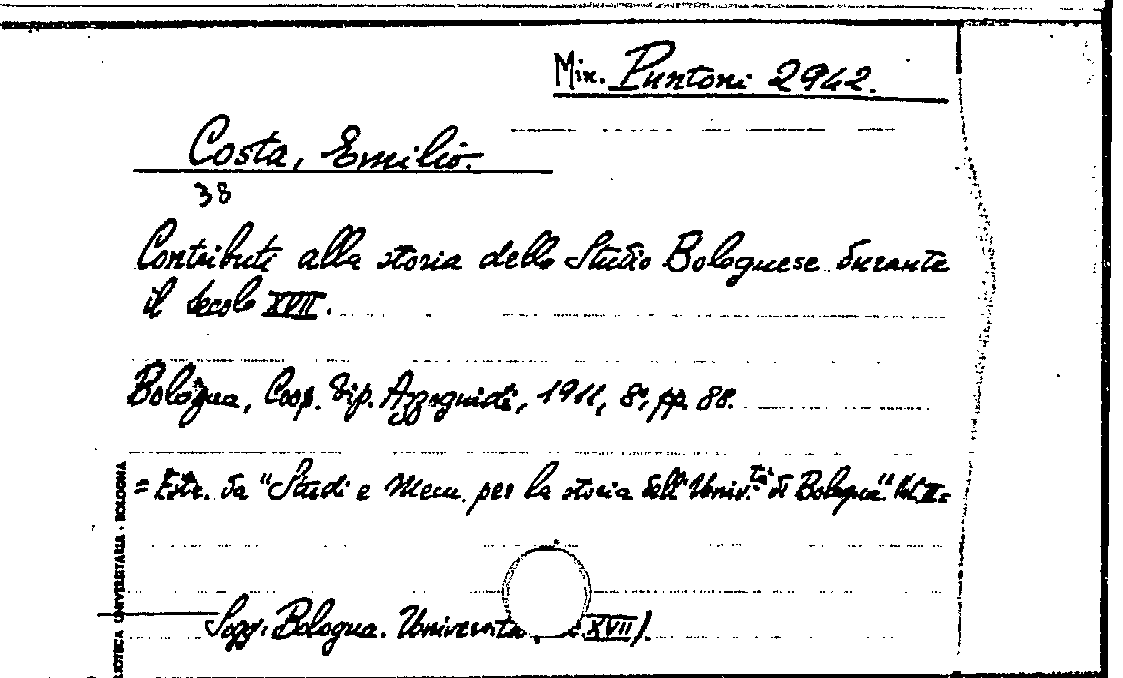 Mix. Puntoni 2942.
Costa, Emilio.
38
Contributi alla storia dello Studio Bolognese durante
il secolo XVII.
Bologna, Coop. Tip. Azzoguidi, 1911, 8º, pp. 88.
= Estr. da "Studi e Mem. per la storia dell'Univ.tà di Bologna" Vol. II =
BIBLIOTECA UNIVERSITARIA - BOLOGNA
Sogg. Bologna. Università XVII).